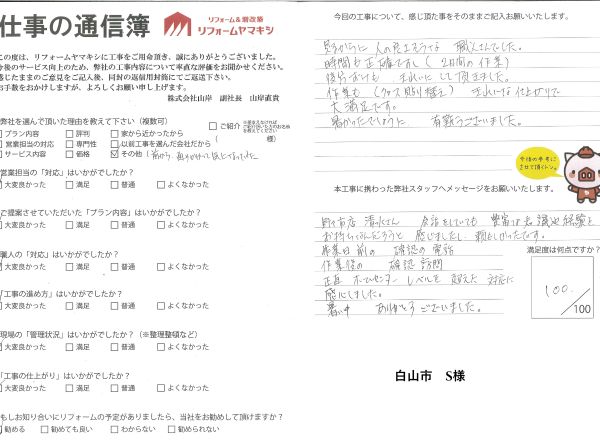 仕事の通信簿
リフォーム&増改築
リフォームヤマキシ
この度は、リフォームヤマキシに工事をご用命頂き、誠にありがとうございました。
今後のサービス向上のため、弊社の工事内容について率直な評価をお聞かせください。
感じたままのご意見をご記入後、同封の返信用封筒にてご返送下さい。
お手数をおかけしますが、よろしくお願い申し上げます。
株式会社山岸 副社長 山岸直貴
弊社を選んで頂いた理由を教えて下さい(複数可)
プラン内容 評判 家から近かったから
営業担当の対応 専門性 以前工事を選んだ会社だから
サービス内容 価格 その他(前から
ご紹介
様)
営業担当の「対応」はいかがでしたか?
大変良かった 満足 普通 よくなかった
ご提案させていただいた「プラン内容」はいかがでしたか?
大変良かった 満足 普通 よくなかった
職人の「対応」はいかがでしたか?
大変良かった 満足 普通 よくなかった
「工事の進め方」はいかがですか?
大変良かった 満足 普通 よくなかった
現場の「管理状況」はいかがでしたか?(※整理整頓など)
大変良かった 満足 普通 よくなかった
「工事の仕上がり」はいかがでしたか?
大変良かった 満足 普通 よくなかった
もしお知り合いにリフォームの予定がありましたら、当社をお勧めして頂けますか?
勧める 勧めても良い わからない 勧められない
今回の工事について、感じ頂た事をそのままご記入お願いいたします。
見るからに 人の良さそうな 職人さんでした。
時間も正確ですし(2日間の作業)
後片付けも きれいに して頂きました。
作業も(クロス貼り替え)きれいな仕上がりで
大満足です。
暑かったでしょうに 有難うございました。
今後の参考に
させて頂くトン。
本工事に携わった弊社スタッフへメッセージをお願いいたします。
野々市店 清水さん 会話をしていても 豊富な知識と経験を
お持ちなんだろうと 感じましたし 頼もしかったです。
作業日前の 確認の電話
作業後の 確認訪問
正直 ホームセンター レベルを 超えた 対応に
感心しました。
暑い中 ありがとうございました。
満足度は何点ですか?
100
/100
白山市 S様